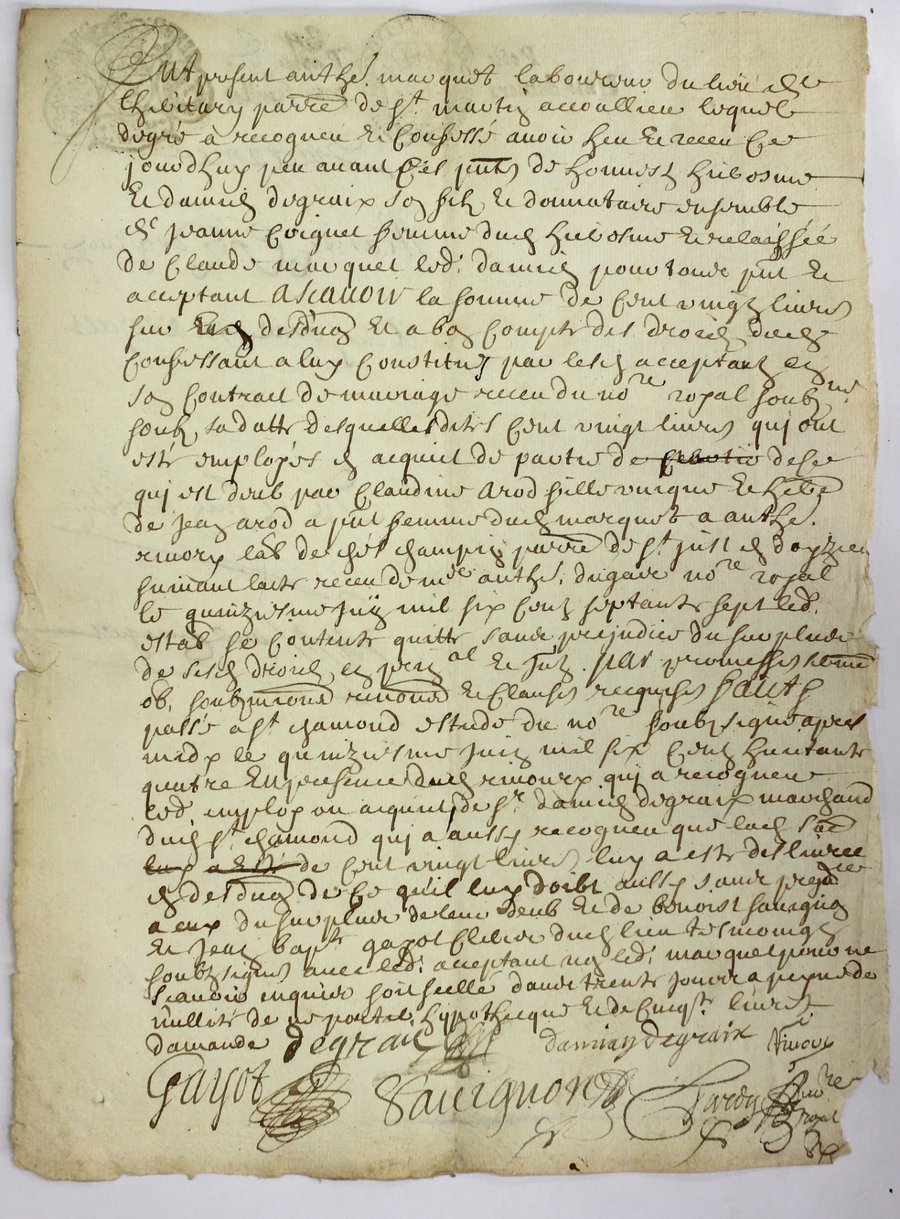 Fut present anthe. macquet laboureur du lieu de
parre de st. martin accoallieu lequel
degré a recogneu et confessé avoir heu et receu ce
jourdhuy peu avant ces pntes de honneste hierosme
et damien degraix son filz et donnataire ensemble
de jeanne coignet femme dud hierosme et relaissée
de claude macquet led. damien pour tous pnt et
acceptant ascavoir la somme de cent vingt livres
sur et desduon et a bon compte des droictz
confessant a luy constitues par lesd acceptant en
son contract de mariage receu du nore royal soubzne
soubz sa datte desquelles dites cent vingt livres qui ont
esté employés en acquict de partie de ce
qui est deub par claudine arod fille unique et
de jean arod a pnt femme dud macquet a anthe.
rimoux lab de chez champin parre de st just en doyzieu
suivant lacte receu de me anthe. dugaie nore royal
le quinziesme juin mil six cent septante sept led.
estab se contente quitte sans prejudice du surplus
de sesd droictz en prin al et par promesses
ob. soubmission et clauses requises faict
passé a st chamond estude du nore soubzsigné apres
midy le quinziesme juin mil six cent huictante
quatre en presence dud rimoux qui a recogneu
led. employ en acquict de sr. damien degraix marchand
dud st chamond qui a aussy recogneu que lad
de cent vingt livres luy a esté deslivrée
en desduon de ce qu'il luy doibt aussy sans
a eux du surplus de leur deub et de benoist sauvignon
et jean bapte gayot clercz dud lieu tesmoingz
soubzsignes avec led. acceptant non led. macquet pour ne
scavoir enquis soit scellé dans trente jours a peyne de
nullité de ne porter hypothecque et de livres
damande degraix damien degraix rimoux
Gayot Sauvignon Tardy nore
royal